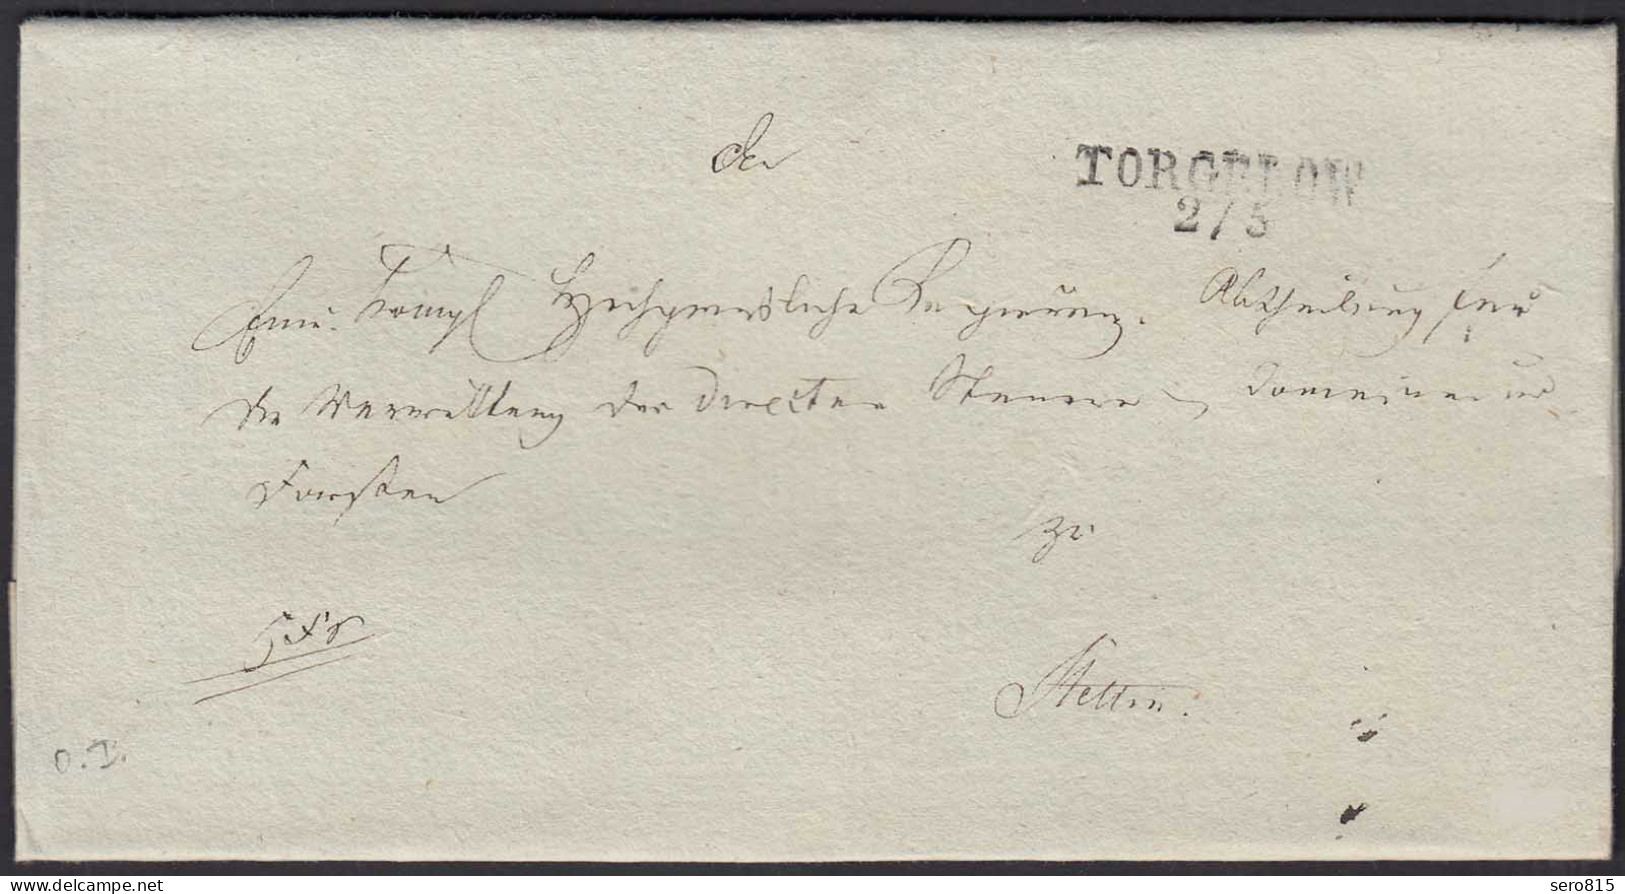 der
TORGELOW
2/5
Königl Hochpreusliche Regierung. Abtheilung fuer
die Verwaltung der Directen Steuern, Domeinen u
Forsten
zu
Stettin.
O.I.
delcampe.net
sero815